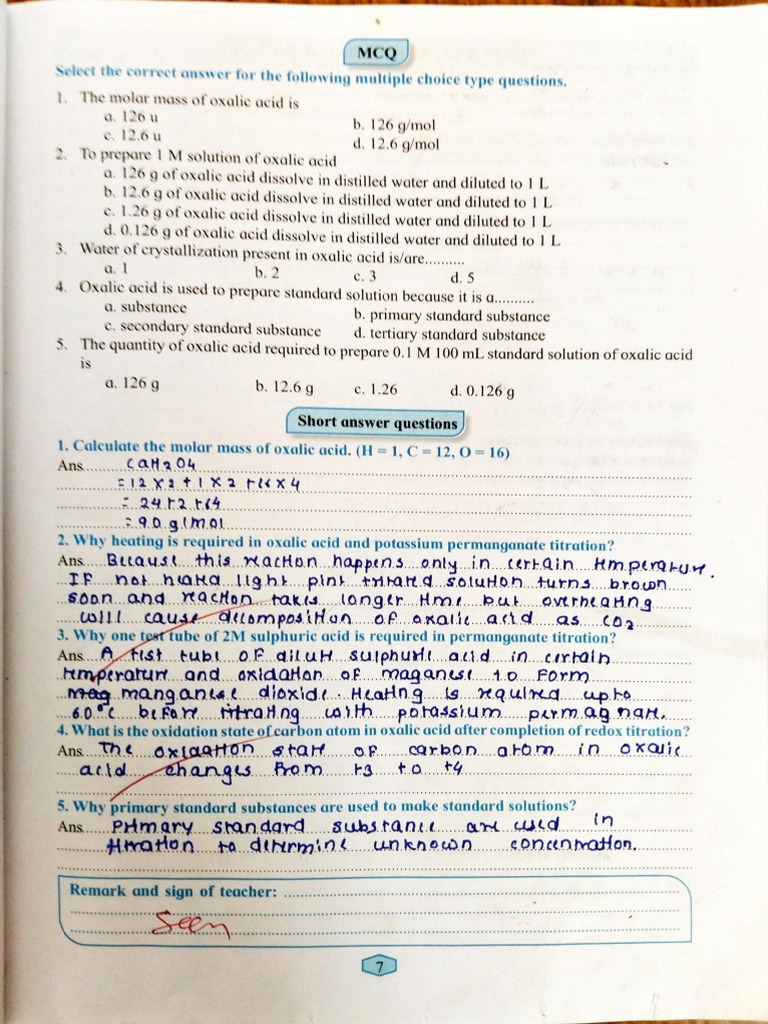 MCQ
Select the correct answer for the following multiple choice type questions.
1. The molar mass of oxalic acid is
a. 126 u b. 126 g/mol
c. 12.6 u d. 12.6 g/mol
2. To prepare 1 M solution of oxalic acid
a. 126 g of oxalic acid dissolve in distilled water and diluted to 1 L
b. 12.6 g of oxalic acid dissolve in distilled water and diluted to 1 L
c. 1.26 g of oxalic acid dissolve in distilled water and diluted to 1 L
d. 0.126 g of oxalic acid dissolve in distilled water and diluted to 1 L
3. Water of crystallization present in oxalic acid is/are..........
a. 1 b. 2 c. 3 d. 5
4. Oxalic acid is used to prepare standard solution because it is a..........
a. substance b. primary standard substance
c. secondary standard substance d. tertiary standard substance
5. The quantity of oxalic acid required to prepare 0.1 M 100 mL standard solution of oxalic acid
is
a. 126 g b. 12.6 g c. 1.26 d. 0.126 g
Short answer questions
1. Calculate the molar mass of oxalic acid. (H = 1, C = 12, O = 16)
Ans. C2H2O4
= 12 x 2 + 1 x 2 + 16 x 4
= 24 + 2 + 64
= 90 g/mol
2. Why heating is required in oxalic acid and potassium permanganate titration?
Ans. Because this reaction happens only in certain temperature.
If not heated light pink titrated solution turns brown
soon and reaction takes longer time but overheating
will cause decomposition of oxalic acid as CO2
3. Why one test tube of 2M sulphuric acid is required in permanganate titration?
Ans. A test tube of dilute sulphuric acid in certain
temperature and oxidation of maganese to form
manganese dioxide. Heating is required upto
60°C before titrating with potassium permagnate.
4. What is the oxidation state of carbon atom in oxalic acid after completion of redox titration?
Ans. The oxidation state of carbon atom in oxalic
acid changes from +3 to +4
5. Why primary standard substances are used to make standard solutions?
Ans. Primary standard substance are used in
titration to determine unknown concentration.
Remark and sign of teacher:
Seen
7